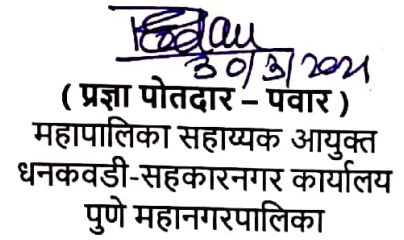 30/3/2021
( प्रज्ञा पोतदार – पवार )
महापालिका सहाय्यक आयुक्त
धनकवडी-सहकारनगर कार्यालय
पुणे महानगरपालिका